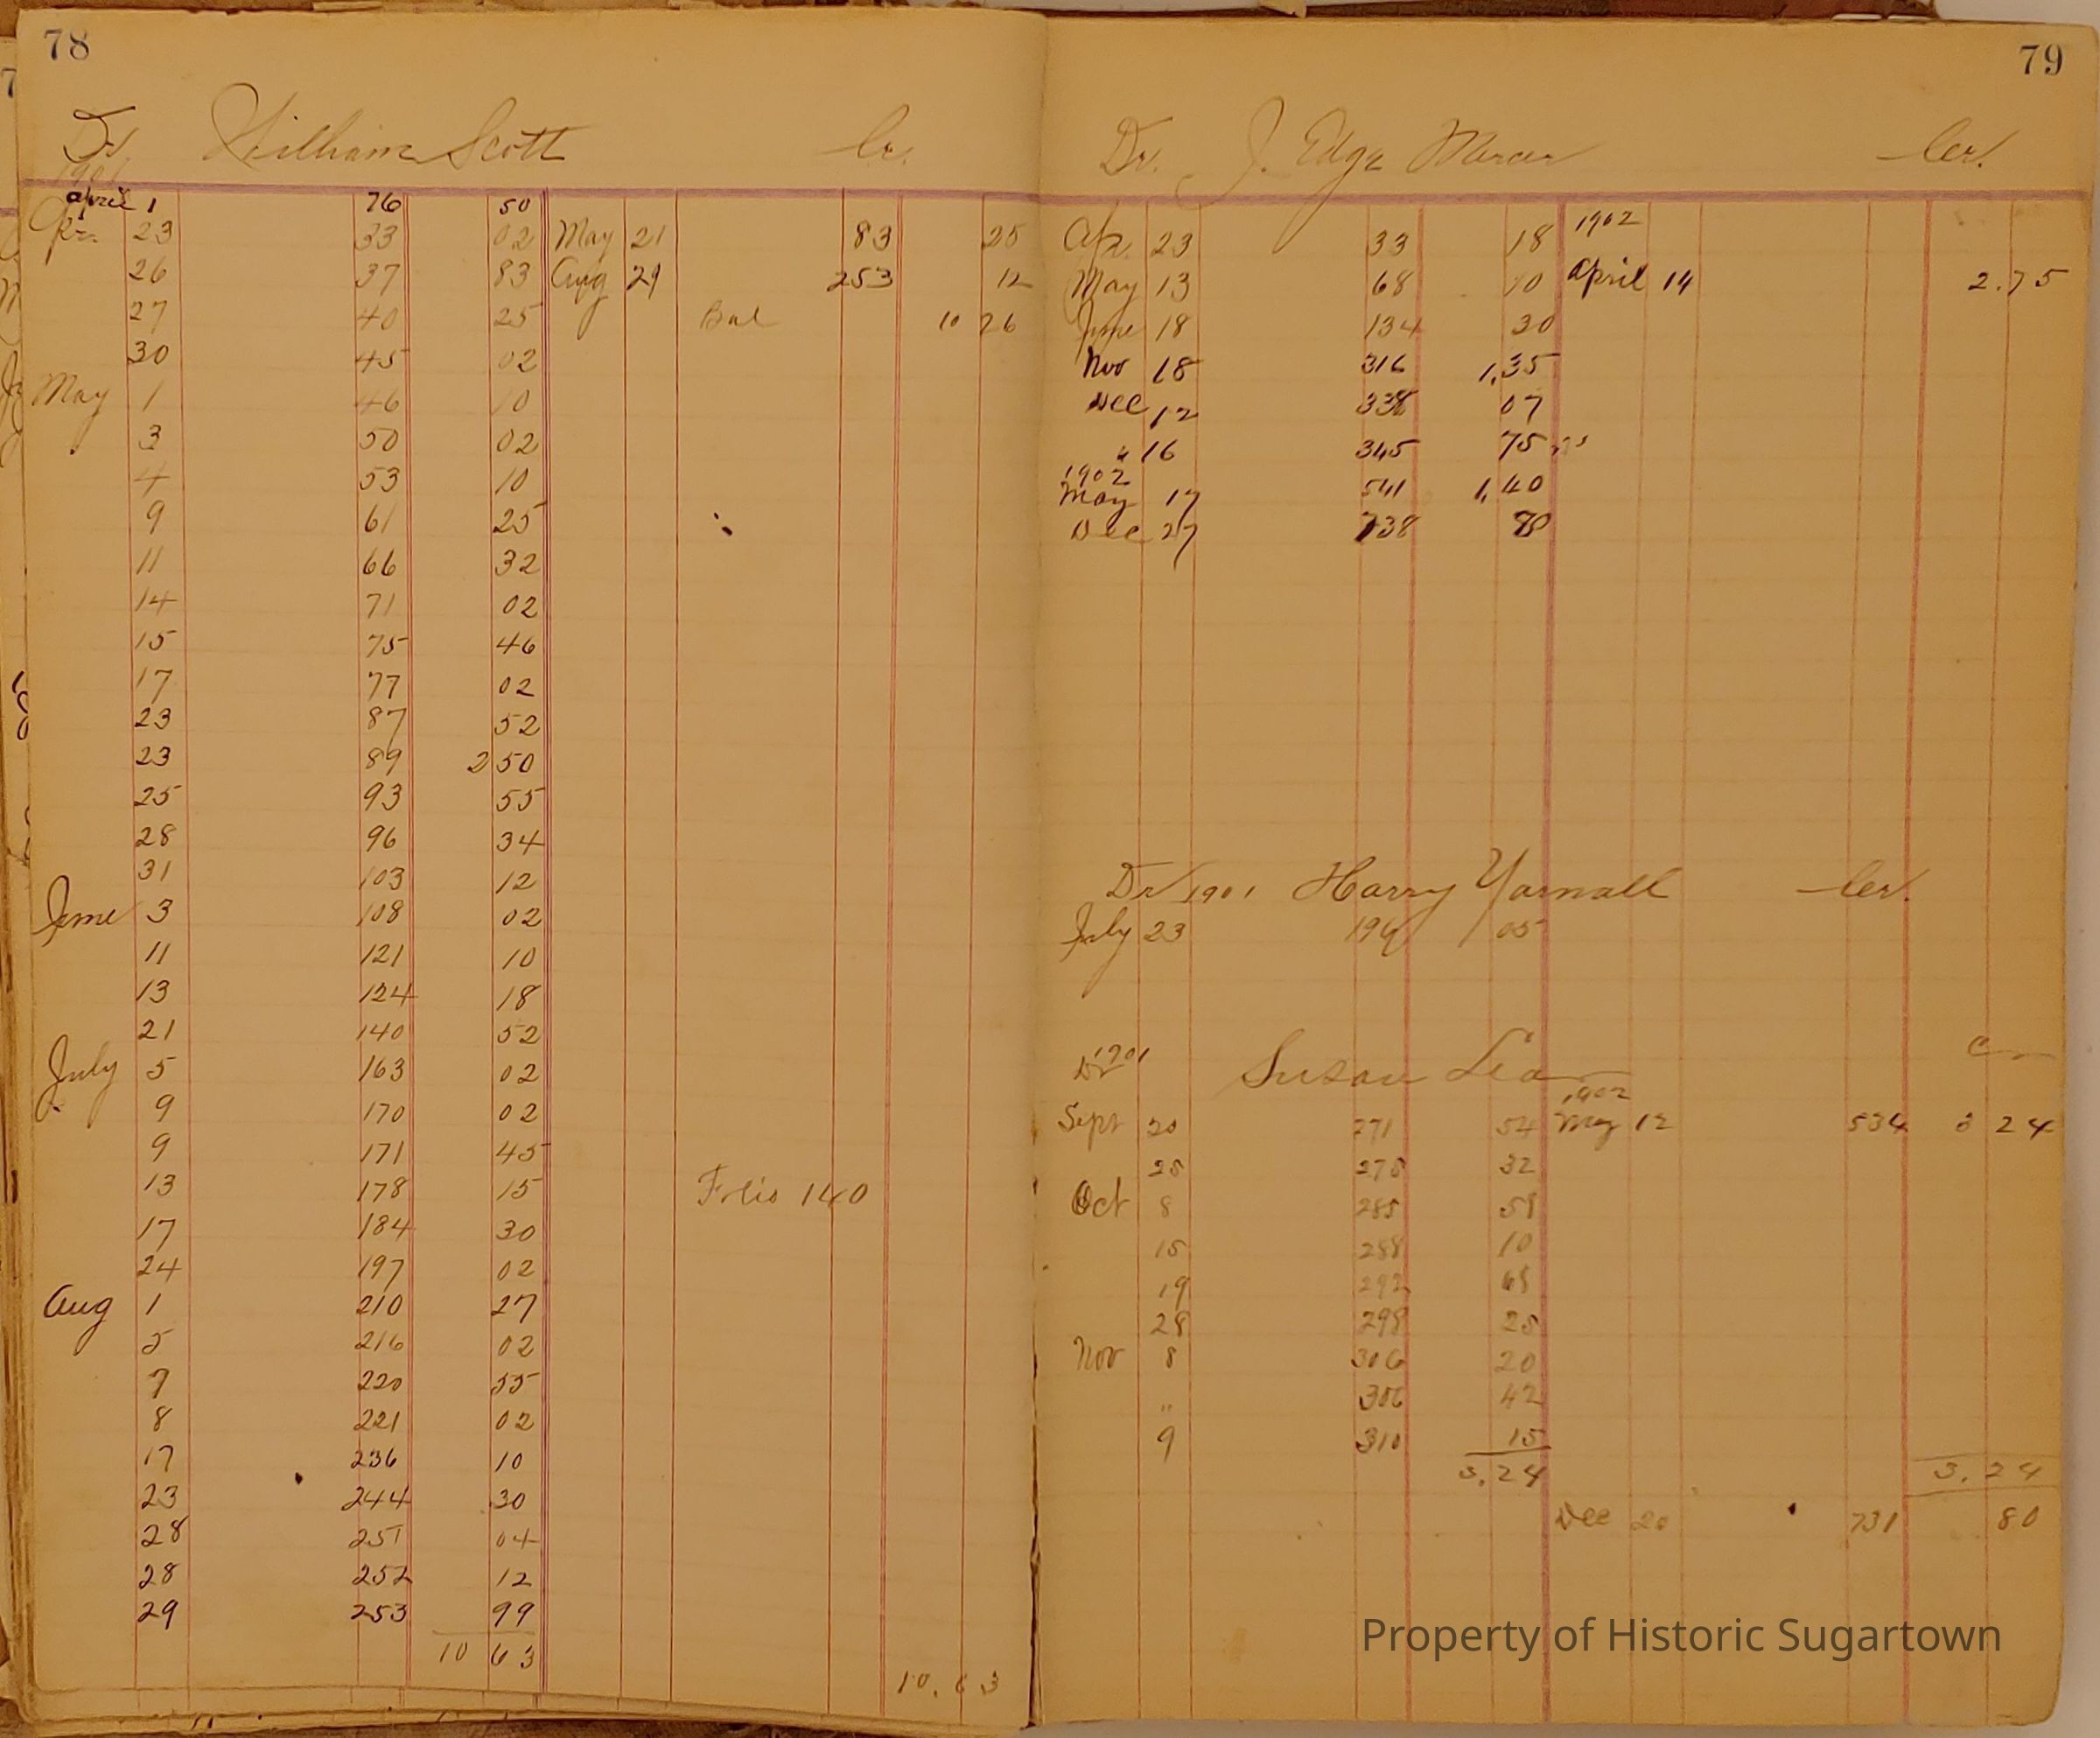 78
Dr William Scott Cr.
1901
April 1 76 50
Apr. 23 33 02 May 21 83 25
26 37 83 Aug 29 253 12
27 40 25 Bal 10 26
30 45 02
May 1 46 10
3 50 02
4 53 10
9 61 25
11 66 32
14 71 02
15 75 46
17 77 02
23 87 52
23 89 2 50
25 93 55
28 96 34
31 103 12
June 3 108 02
11 121 10
13 124 18
21 140 52
July 5 163 02
9 170 02
9 171 45
13 178 15 Folio 140
17 184 30
24 197 02
Aug 1 210 27
5 216 02
7 220 55
8 221 02
17 236 10
23 244 30
28 251 04
28 252 12
29 253 99
10 63
10.63
79
Dr. J. Edge Mercer Cr.
Apr. 23 33 18 1902
May 13 68 10 April 14 2.75
June 18 134 30
Nov 18 316 1,35
Dec 12 338 07
" 16 345 75
1902
May 17 541 1,40
Dec 27 738 80
Dr 1901 Harry Yarnall Cr.
July 23 194 1 05
Dr 1901 Susan Lear Cr
1902
Sept 20 271 54 May 12 534 3 24
25 275 32
Oct 8 285 58
15 288 10
19 292 68
28 298 25
Nov 8 306 20
" 306 42
9 310 15
3.24 3.24
Dec 20 731 80
Property of Historic Sugartown